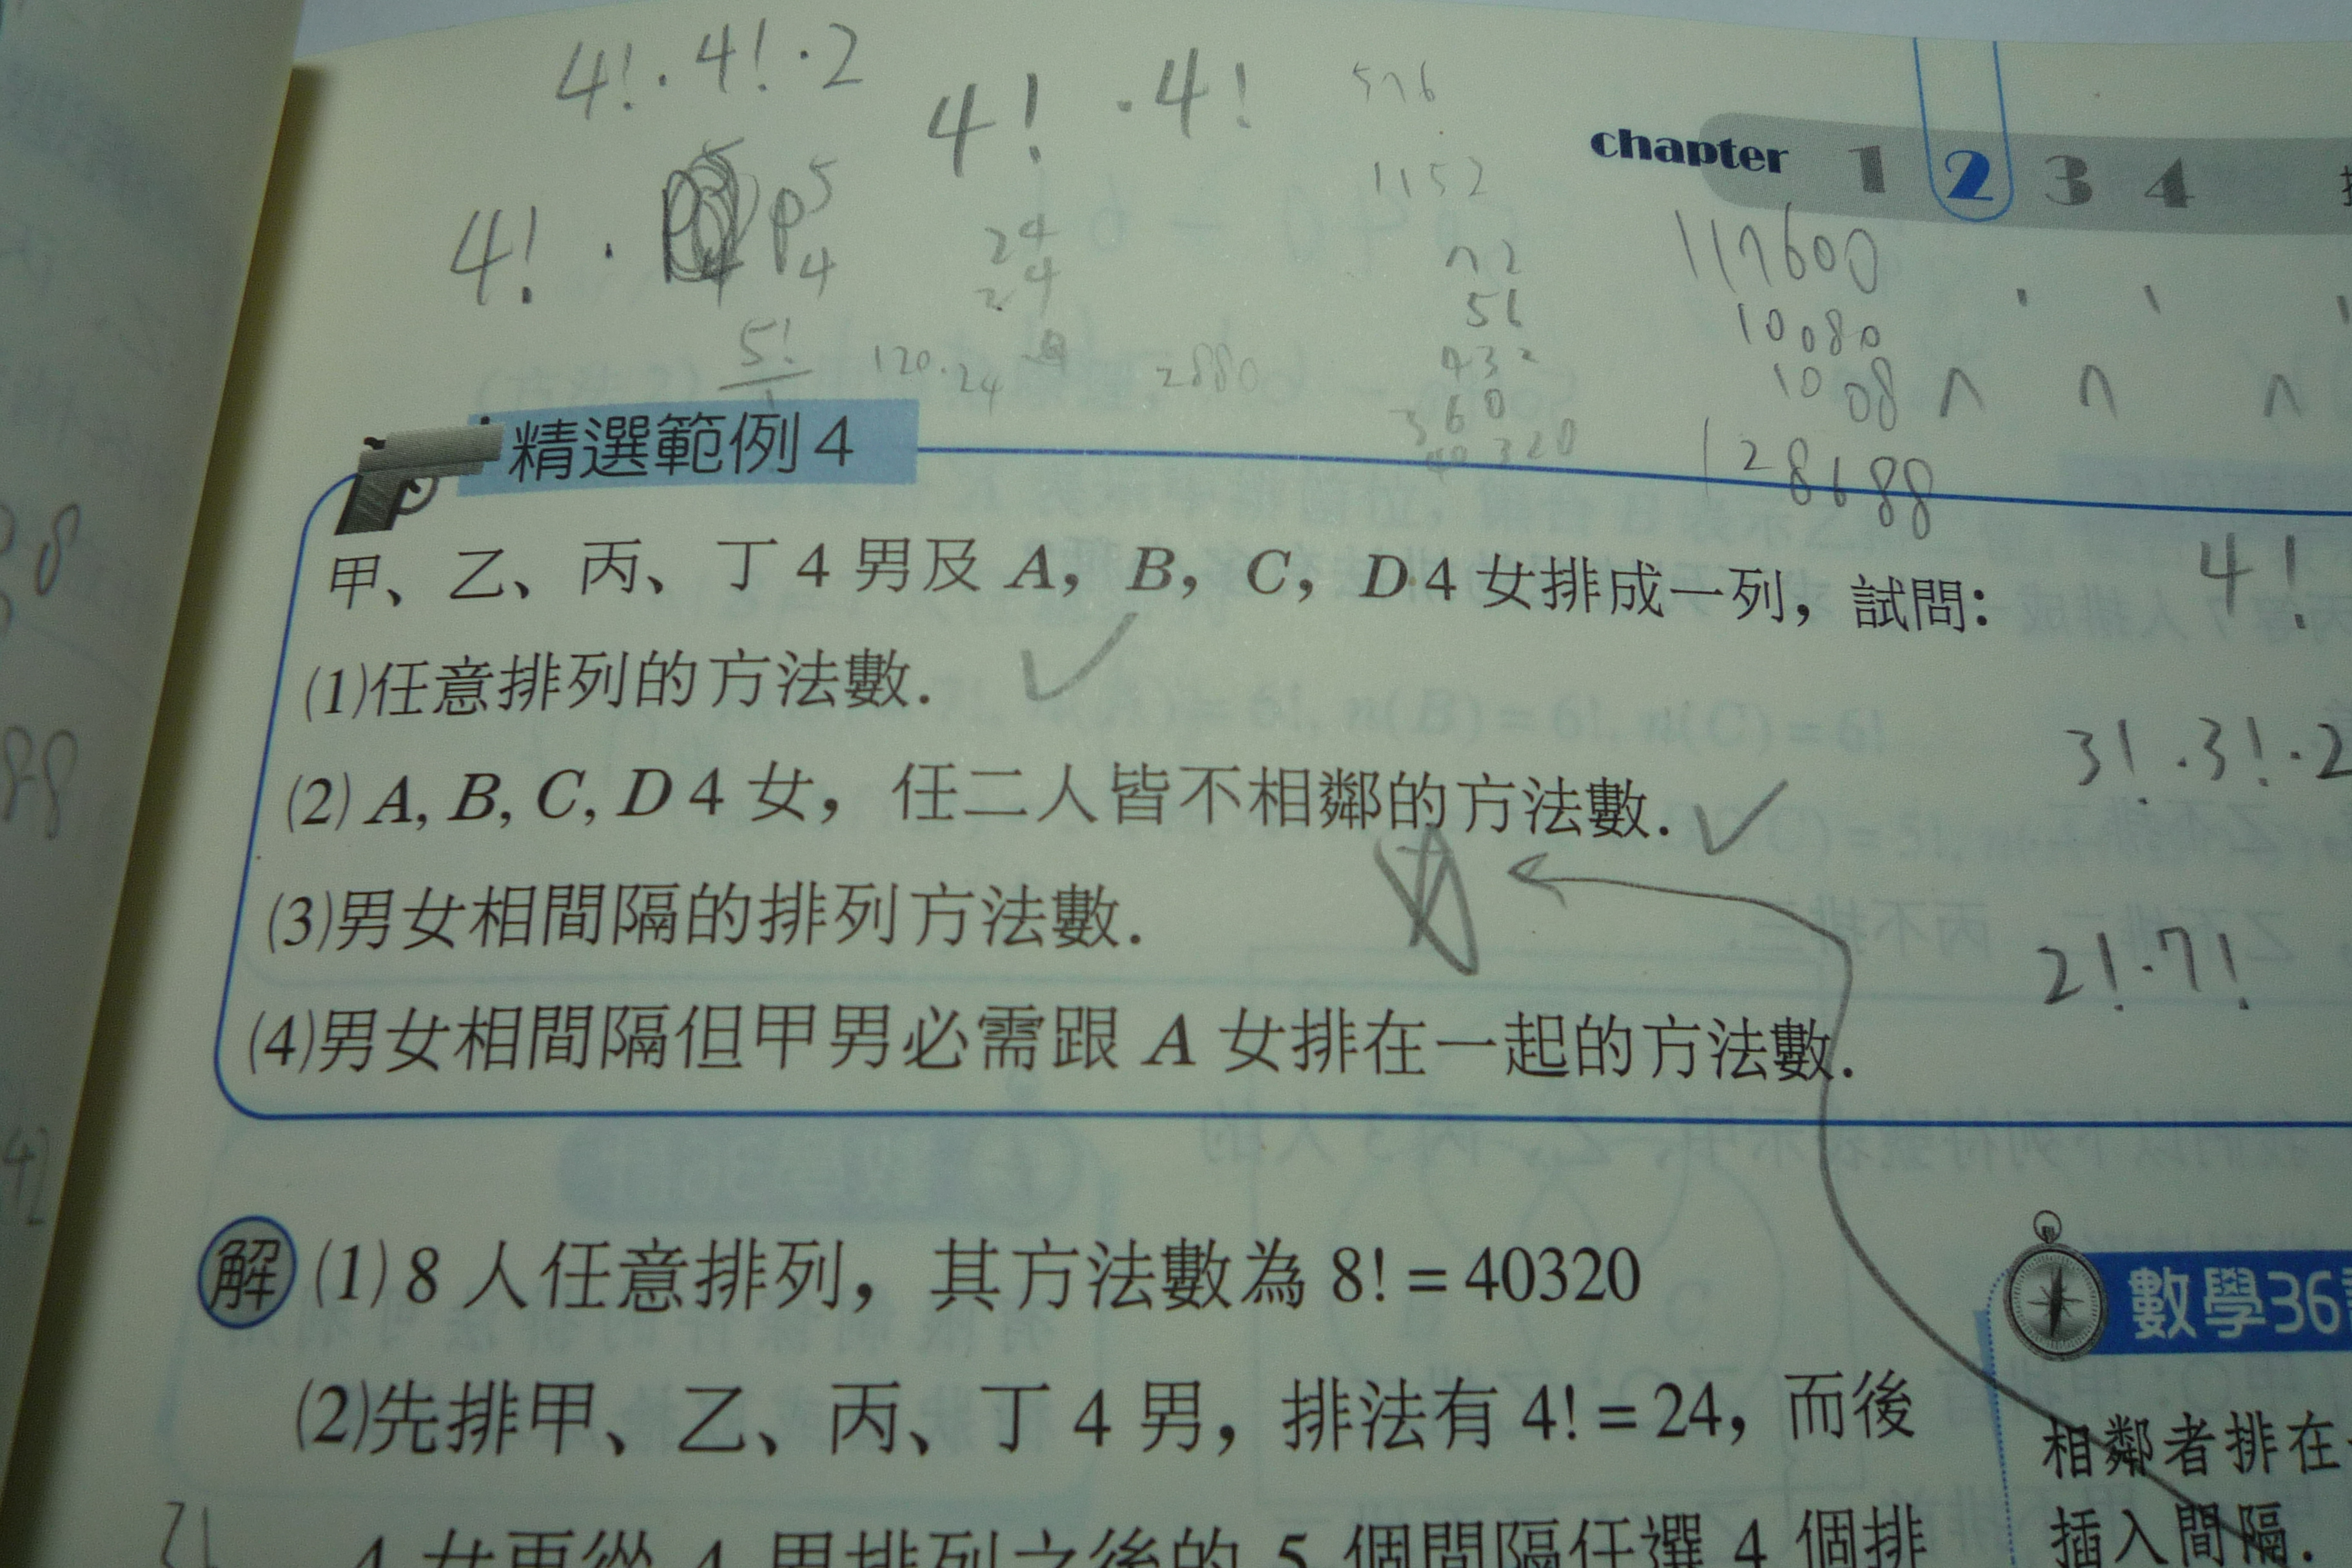 4!·4!·2
4!·4!
576
1152
chapter 1 2 3 4
4!·P⁵₄
24
24
72
56
432
360
40320
117600
10080
1008
128688
5!
120·24
2880
精選範例4
甲、乙、丙、丁 4 男及 A, B, C, D 4 女排成一列，試問：
4!
(1)任意排列的方法數.
(2) A, B, C, D 4 女，任二人皆不相鄰的方法數.
3!·3!·2
(3)男女相間隔的排列方法數.
2!·7!
(4)男女相間隔但甲男必需跟 A 女排在一起的方法數.
解 (1) 8 人任意排列，其方法數為 8! = 40320
(2)先排甲、乙、丙、丁 4 男，排法有 4! = 24，而後
4 女再從 4 男排列之後的 5 個間隔任選 4 個排
數學36
相鄰者排在
插入間隔.